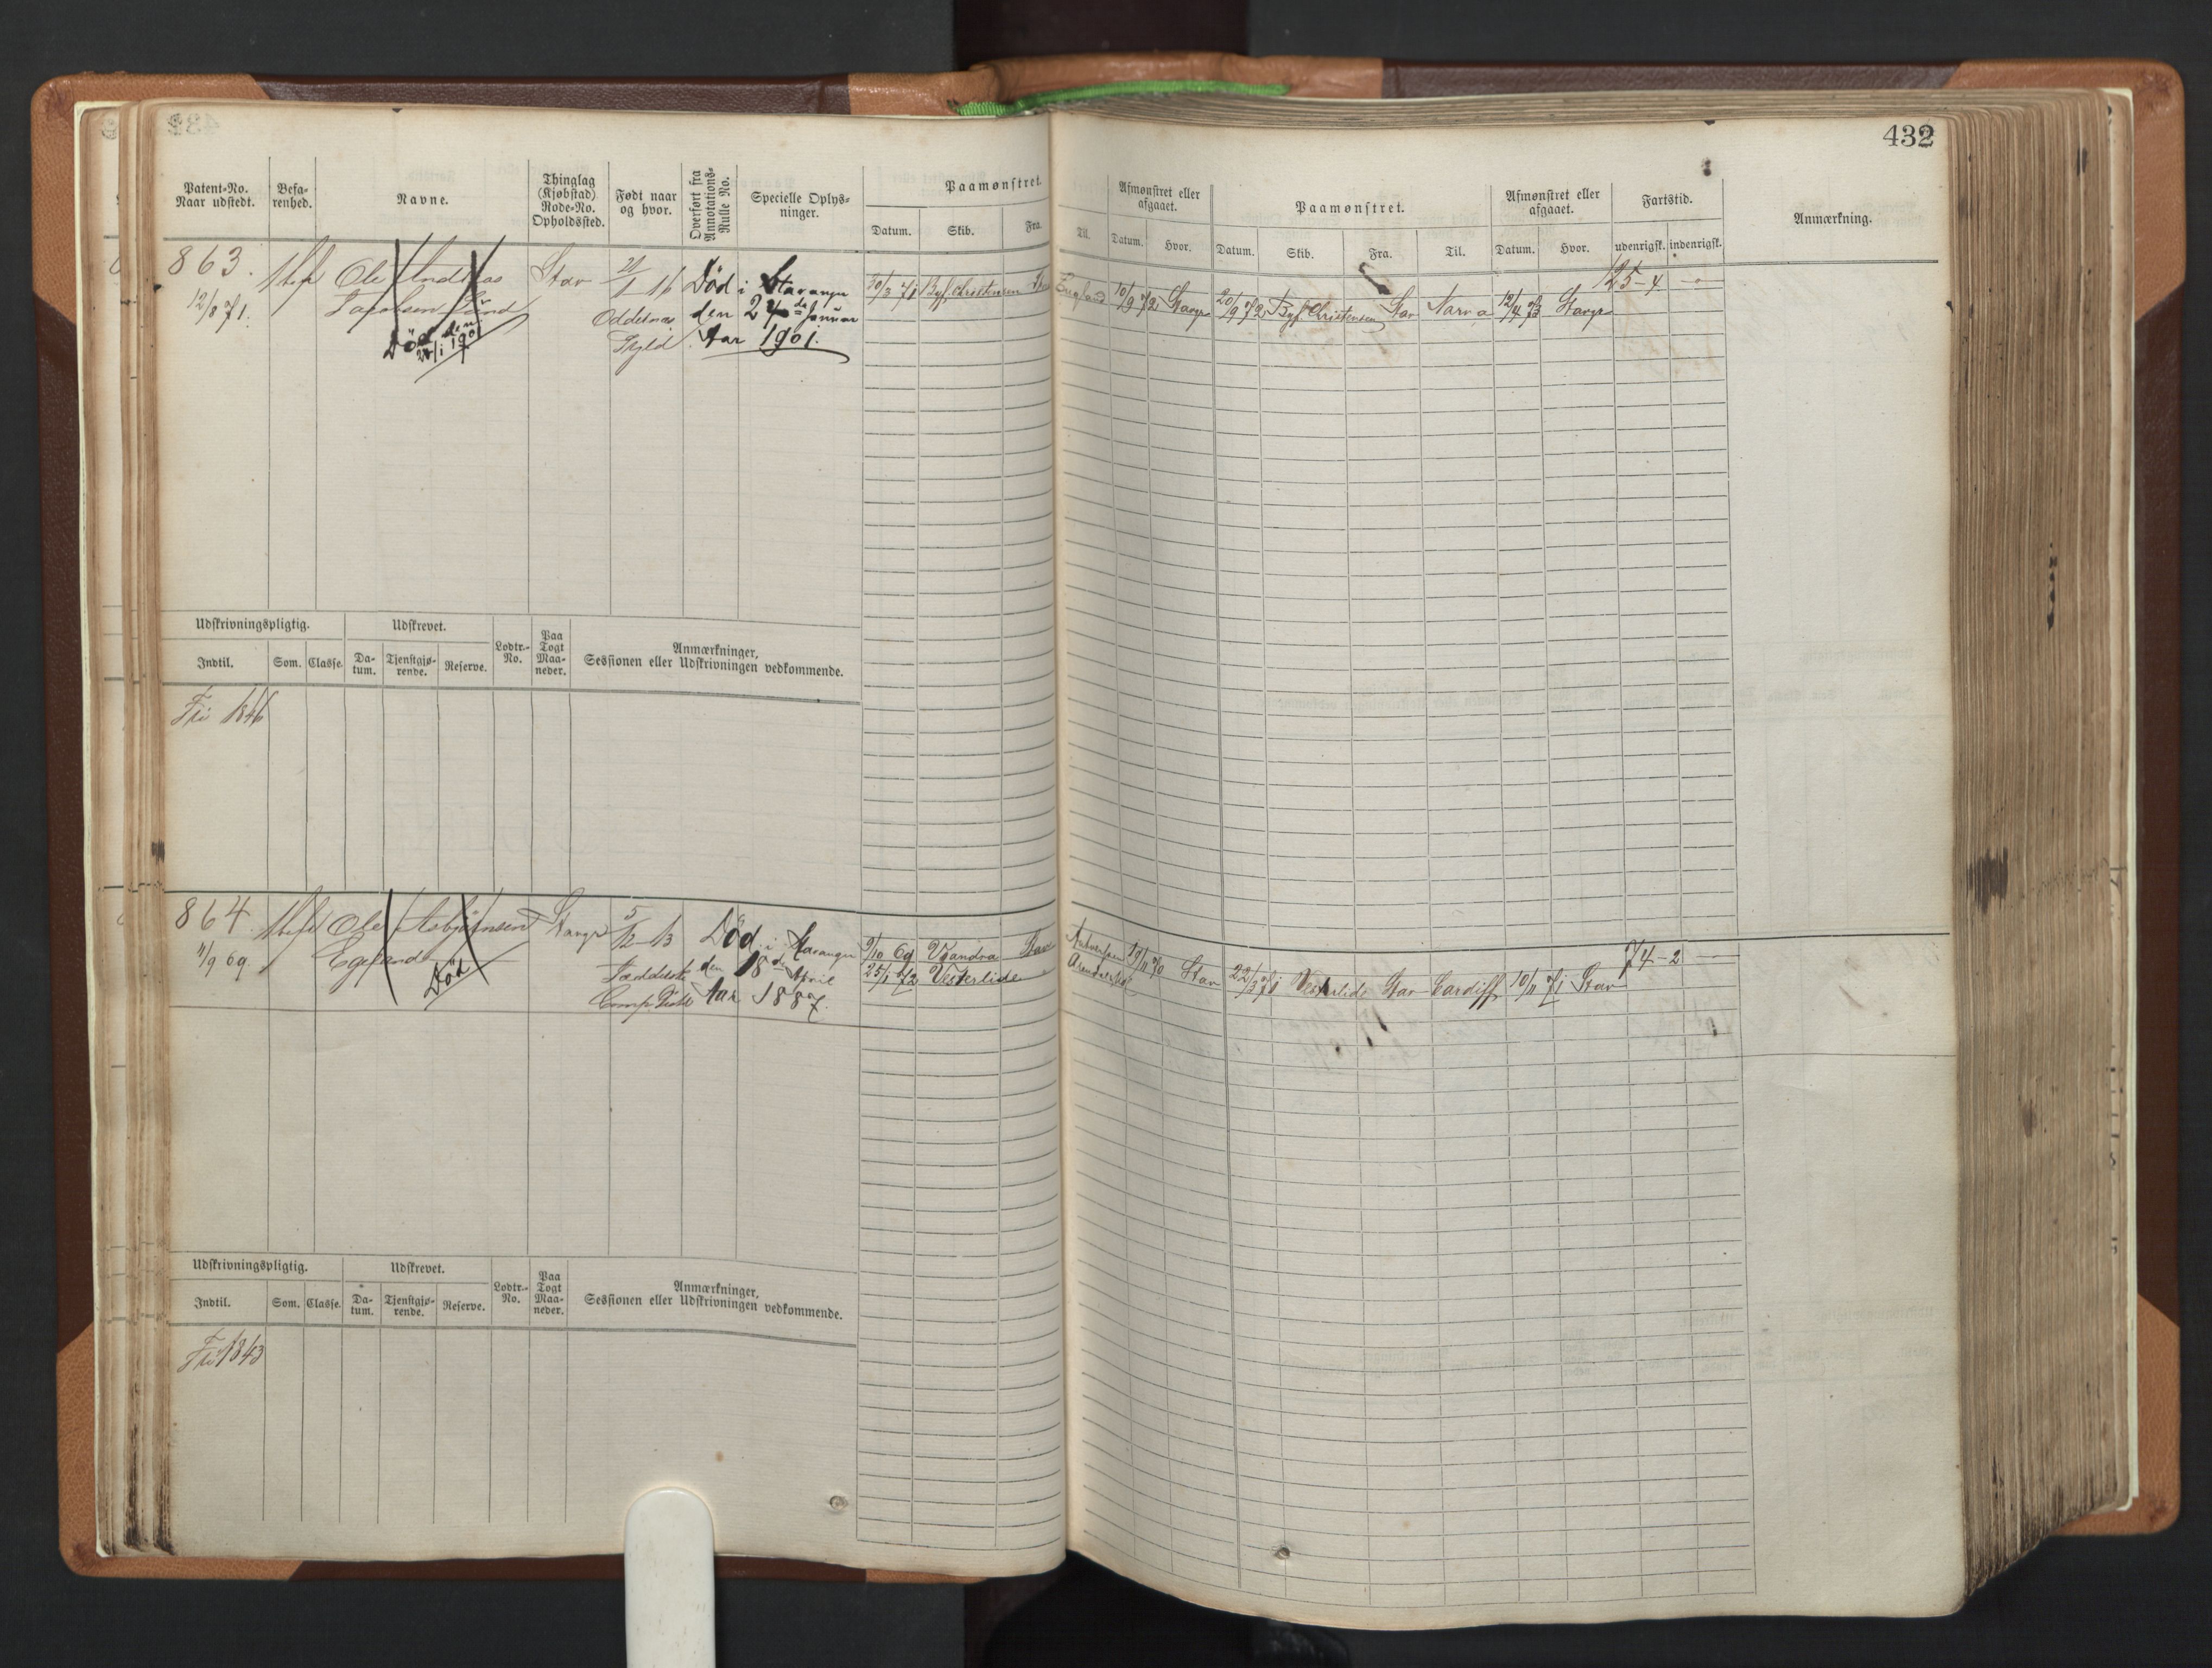 432
Patent=No. Naar udstedt.
Befa=renhed.
Navne.
Thinglag (Kjøbstad) Rode=No. Opholdssted.
Født naar og hvor.
Overført fra Annotations=Rulle No.
Specielle Oplys=ninger.
Paamønstret.
Datum. Skib. Fra. Til.
Afmønstret eller afgaaet.
Datum. Hvor.
Paamønstret.
Datum. Skib. Fra. Til.
Afmønstret eller afgaaet.
Datum. Hvor.
Fartstid.
udenrigsk. indenrigsk.
Anmærkning.
863. Ole Andreas Stav 21/1 16 Død i Stavanger 125-4 -"-
12/8 71. Jacobsen Lund Oddernæs den 24de Januar
Død den 24/1 1901 Aar 1901.
30/3 71 Byf. Christensen England 10/9 72 Stavgr 20/9 72 Byf. Christensen Stav Narva 12/4 73 Stavgr
Udskrivningspligtig. Udskrevet. Lodtr.=No. Paa Togt Maa=neder. Anmærkninger, Sessionen eller Udskrivningen vedkommende.
Indtil. Som. Classe. Da=tum. Tjenstgjø=rende. Reserve.
Fri 1846
864. Ole Asbjørnsen Stavgr 5/12-13 Død i Stavanger 74-2
11/9 69 Egeland den 18de April
Død Aar 1887.
9/10 69 Stav Antwerpen 19/11 70 Stav 22/3 71 Vesterlide Stav Cardiff 10/11 71 Stav
25/1 72 Vesterlide "
Udskrivningspligtig. Udskrevet. Lodtr.=No. Paa Togt Maa=neder. Anmærkninger, Sessionen eller Udskrivningen vedkommende.
Indtil. Som. Classe. Da=tum. Tjenstgjø=rende. Reserve.
Fri 1843